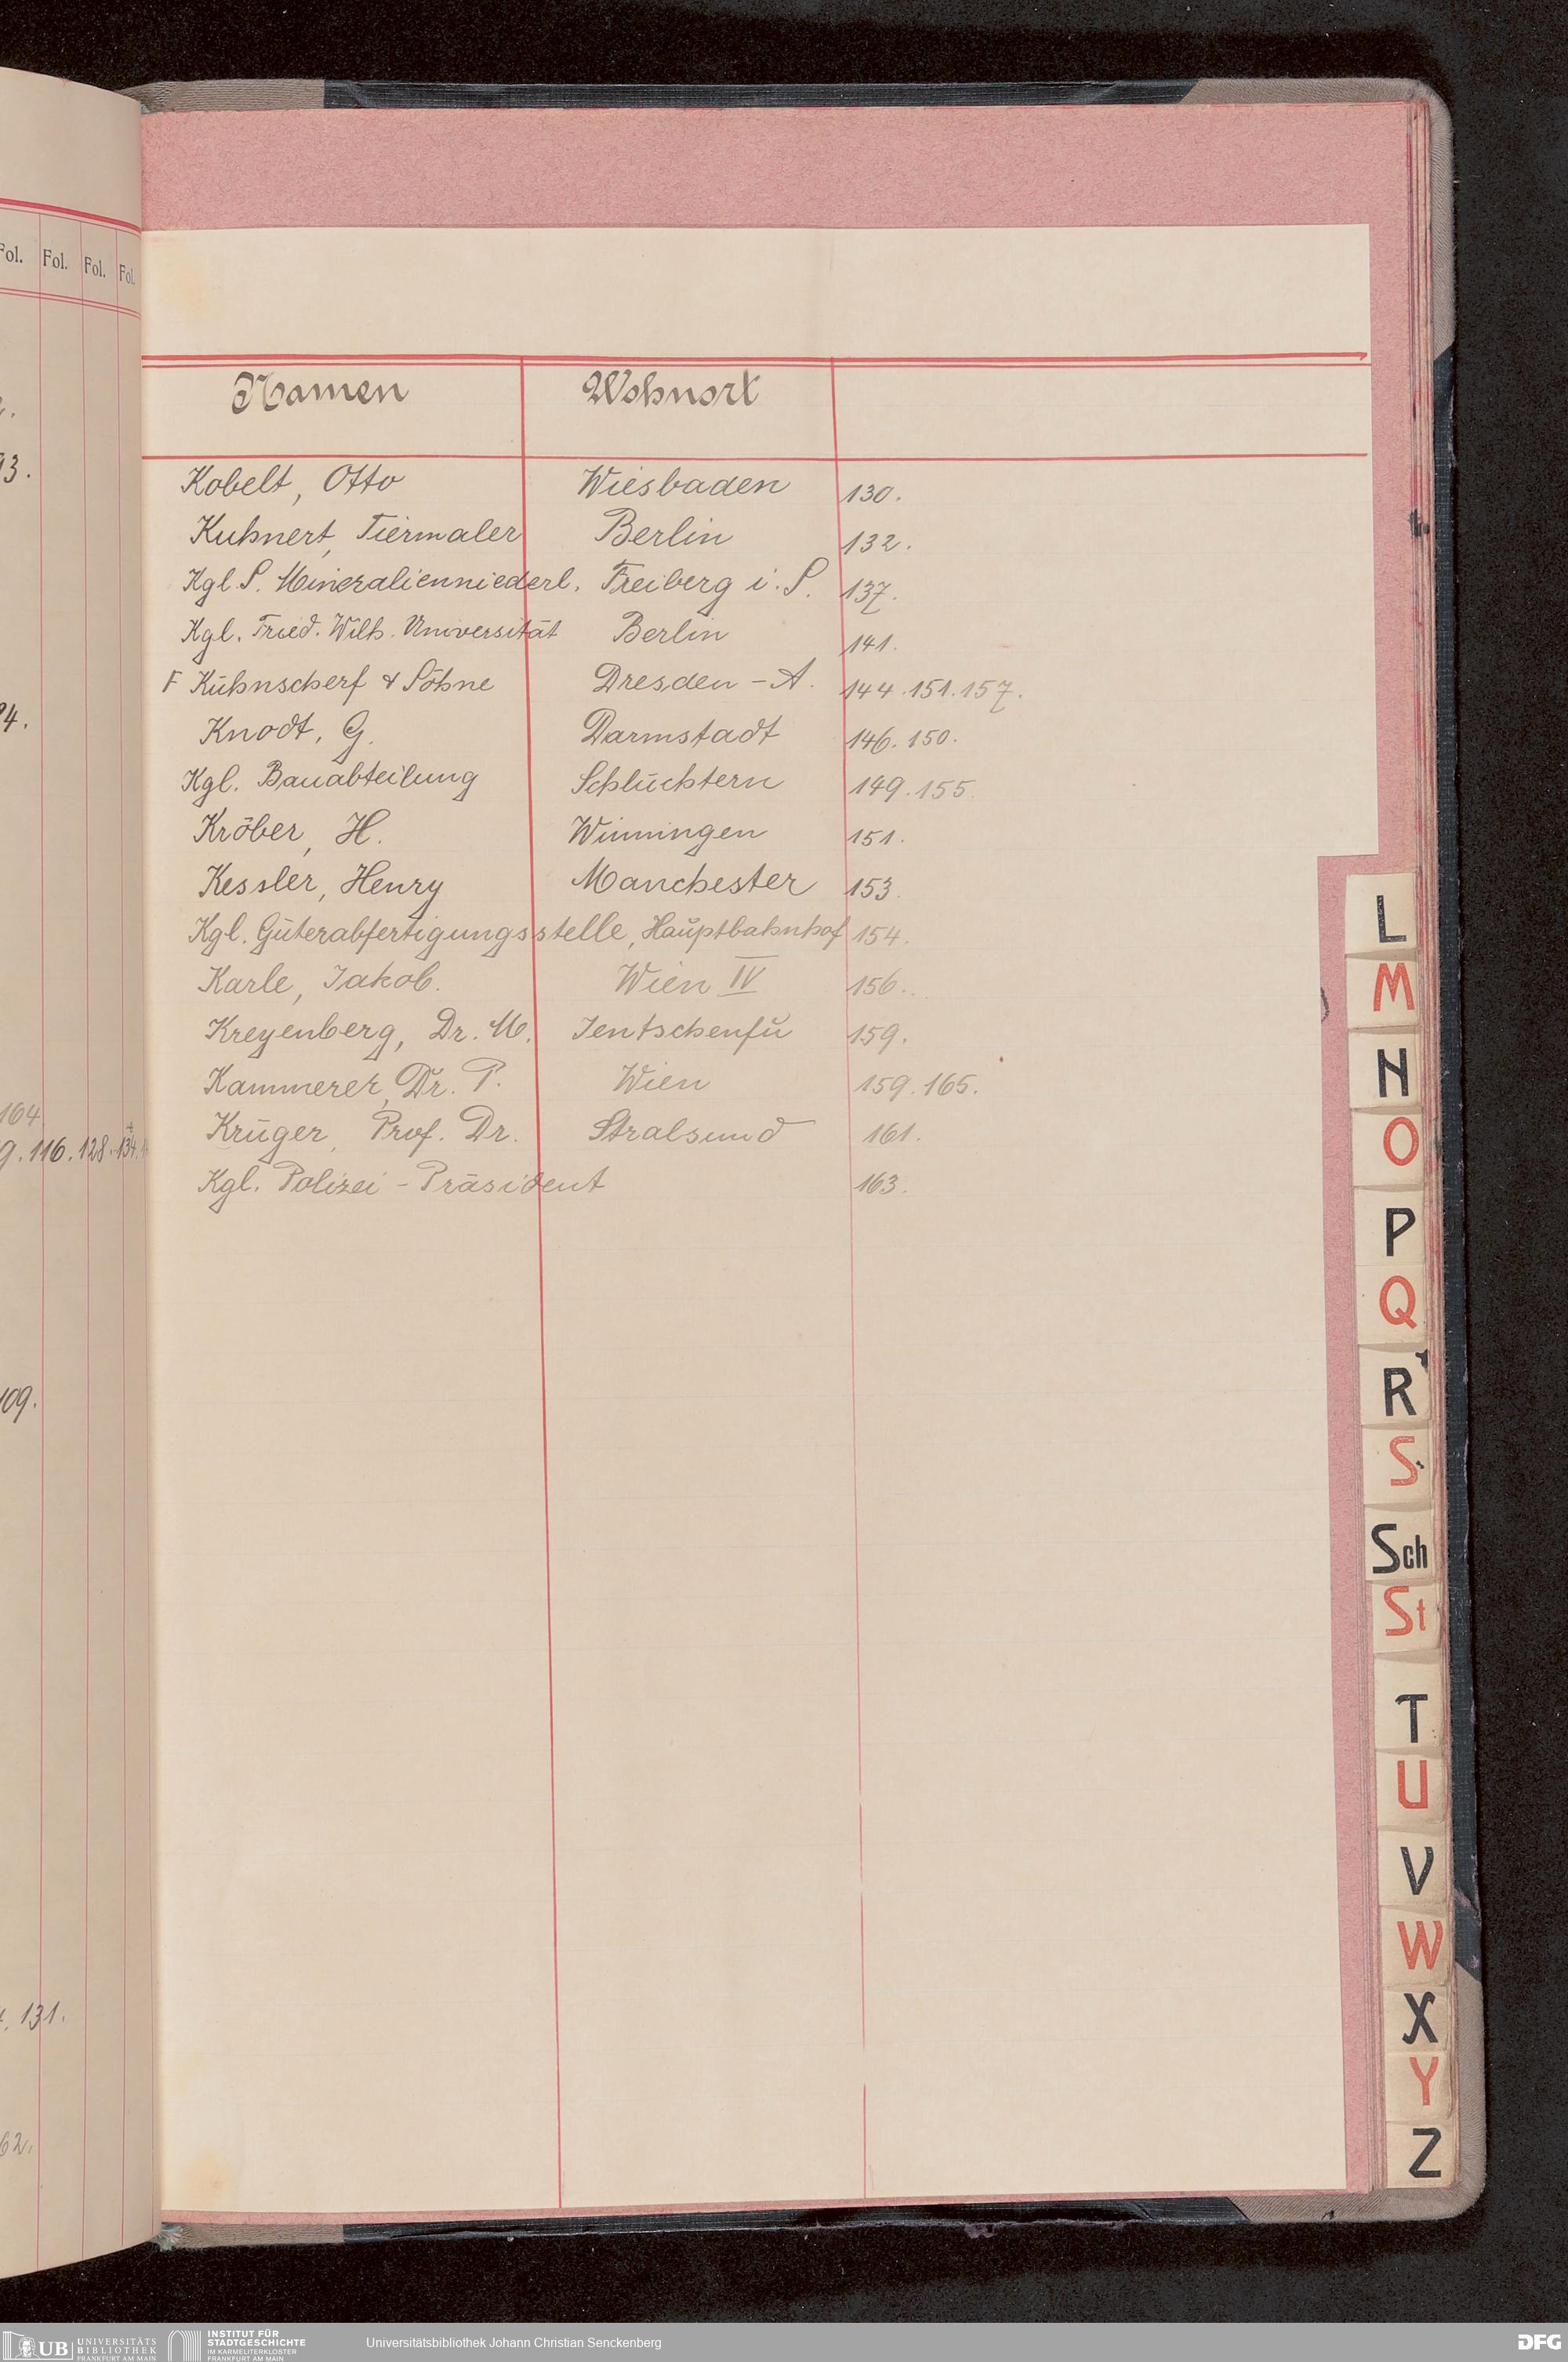 Fol. Fol. Fol. Fol.
93.
94.
164
9. 116. 128. 134.
109.
131.
62.
Namen Wohnort
Kobelt, Otto Wiesbaden 130.
Kuhnert, Tiermaler Berlin 132.
Kgl. S. Mineralienniederl. Freiberg i. S. 137.
Kgl. Fried. Wilh. Universität Berlin 141.
F Kühnscherf & Söhne Dresden - A. 144. 151. 157.
Knodt, G. Darmstadt 146. 150.
Kgl. Bauabteilung Schlüchtern 149. 155.
Kröber, H. Winningen 151.
Kessler, Henry Manchester 153.
Kgl. Güterabfertigungsstelle, Hauptbahnhof 154.
Karle, Jakob. Wien IV 156.
Kreyenberg, Dr. M. Tentschenfu 159.
Kammerer, Dr. P. Wien 159. 165.
Krüger, Prof. Dr. Stralsund 161.
Kgl. Polizei - Präsident 163.
L
M
N
O
P
Q
R
S
Sch
St
T
U
V
W
X
Y
Z
UB UNIVERSITÄTS
BIBLIOTHEK
FRANKFURT AM MAIN
INSTITUT FÜR
STADTGESCHICHTE
IM KARMELITERKLOSTER
FRANKFURT AM MAIN
Universitätsbibliothek Johann Christian Senckenberg
DFG